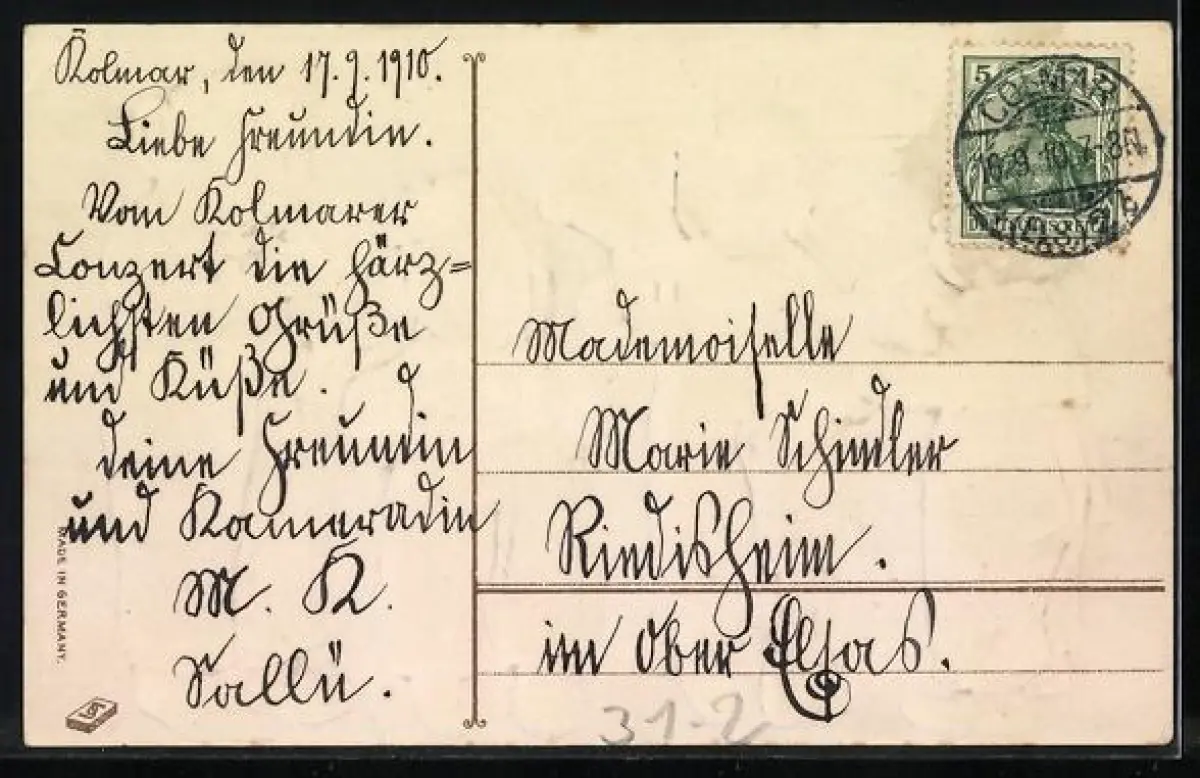 Kolmar, den 17.9.1910.
Liebe Freundin.
Vom Kolmarer
Conzert die härz=
lichsten Grüße
und Küße.
deine Freundin
und Kameradin
M. K.
Sallü.
MADE IN GERMANY.
5
COLMAR
16.9.10.7-8N.
DEUTSCHES REICH
Mademoiselle
Marie Schindler
Riedisheim.
im Ober Elsas.
31-2